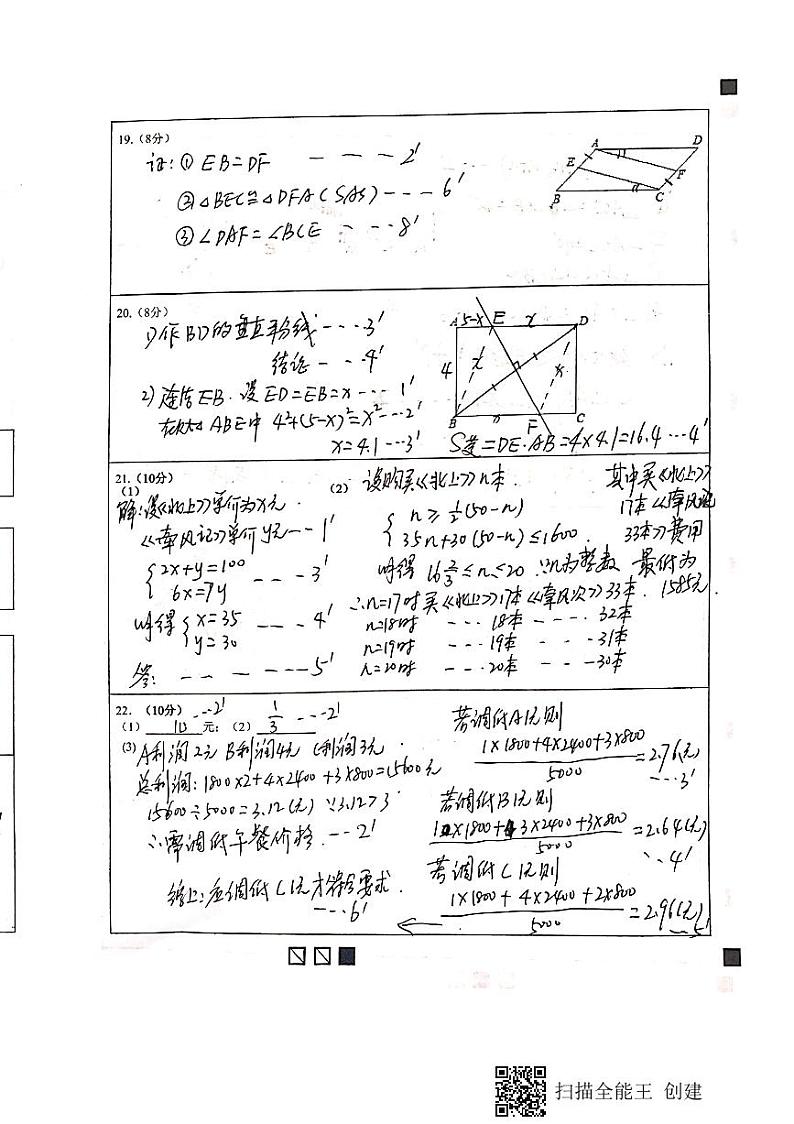 19.（8分）
证：① EB=DF — — — 2'
② △BEC≌△DFA（SAS）— — — 6'
③ ∠DAF=∠BCE — — — 8'
A
D
E
F
B
C
20.（8分）
1) 作BD的垂直平分线 --- 3'
结论 --- 4'
2) 连结EB. 设ED=EB=x --- 1'
在Rt△ABE中 4²+(5-x)²=x² --- 2'
x=4.1 --- 3'
S菱=DE·AB=4×4.1=16.4 --- 4'
A 5-x E x D
4
x
x
B
F
C
21.（10分）
(1)
解：设《北上》单价为x元
《牵风记》单价y元 --- 1'
2x+y=100
6x=7y
--- 3'
x=35
y=30
--- 4'
答： — — — --- 5'
(2) 设购买《北上》n本
n≥½(50-n)
35n+30(50-n)≤1600.
解得 16⅔≤n≤20 ∵n为整数
∴n=17时 买《北上》17本 33本.
n=18时 --- 18本 ---- 32本
n=19时 --- 19本 - - - 31本
n=20时 --- 20本 - - - 30本
其中买《北上》
17本《牵风记》
33本 费用
最低为
1585元.
22.（10分） ---2'
(1) 10 元； (2) 1/3 ---2'
(3) A利润2元 B利润4元 C利润3元.
总利润：1800×2+4×2400+3×800=15600元
15600÷5000=3.12(元) ∵3.12>3
∴需调低午餐价格. --- 2'
综上：应调低C 1元才符合要求.
--- 6'
若调低A 1元则
(1×1800+4×2400+3×800)/5000=2.76(元)
--- 3'
若调低B 1元则
×1800+3×2400+3×800
5000
=2.64(元)
--- 4'
若调低C 1元则
(1×1800+4×2400+2×800)/5000=2.96(元)
--- 5'
扫描全能王 创建